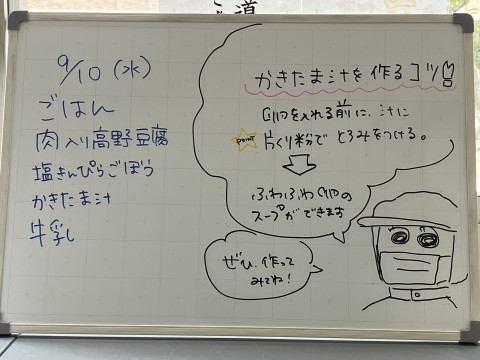 道
9/10 (水)
ごはん
肉入り高野豆腐
塩きんぴらごぼう
かきたま汁
牛乳
かきたま汁を作るコツ!!
卵を入れる前に、汁に
POINT
片くり粉で とろみをつける。
ふわふわ卵の
スープができます
ぜひ、作って
みてね!